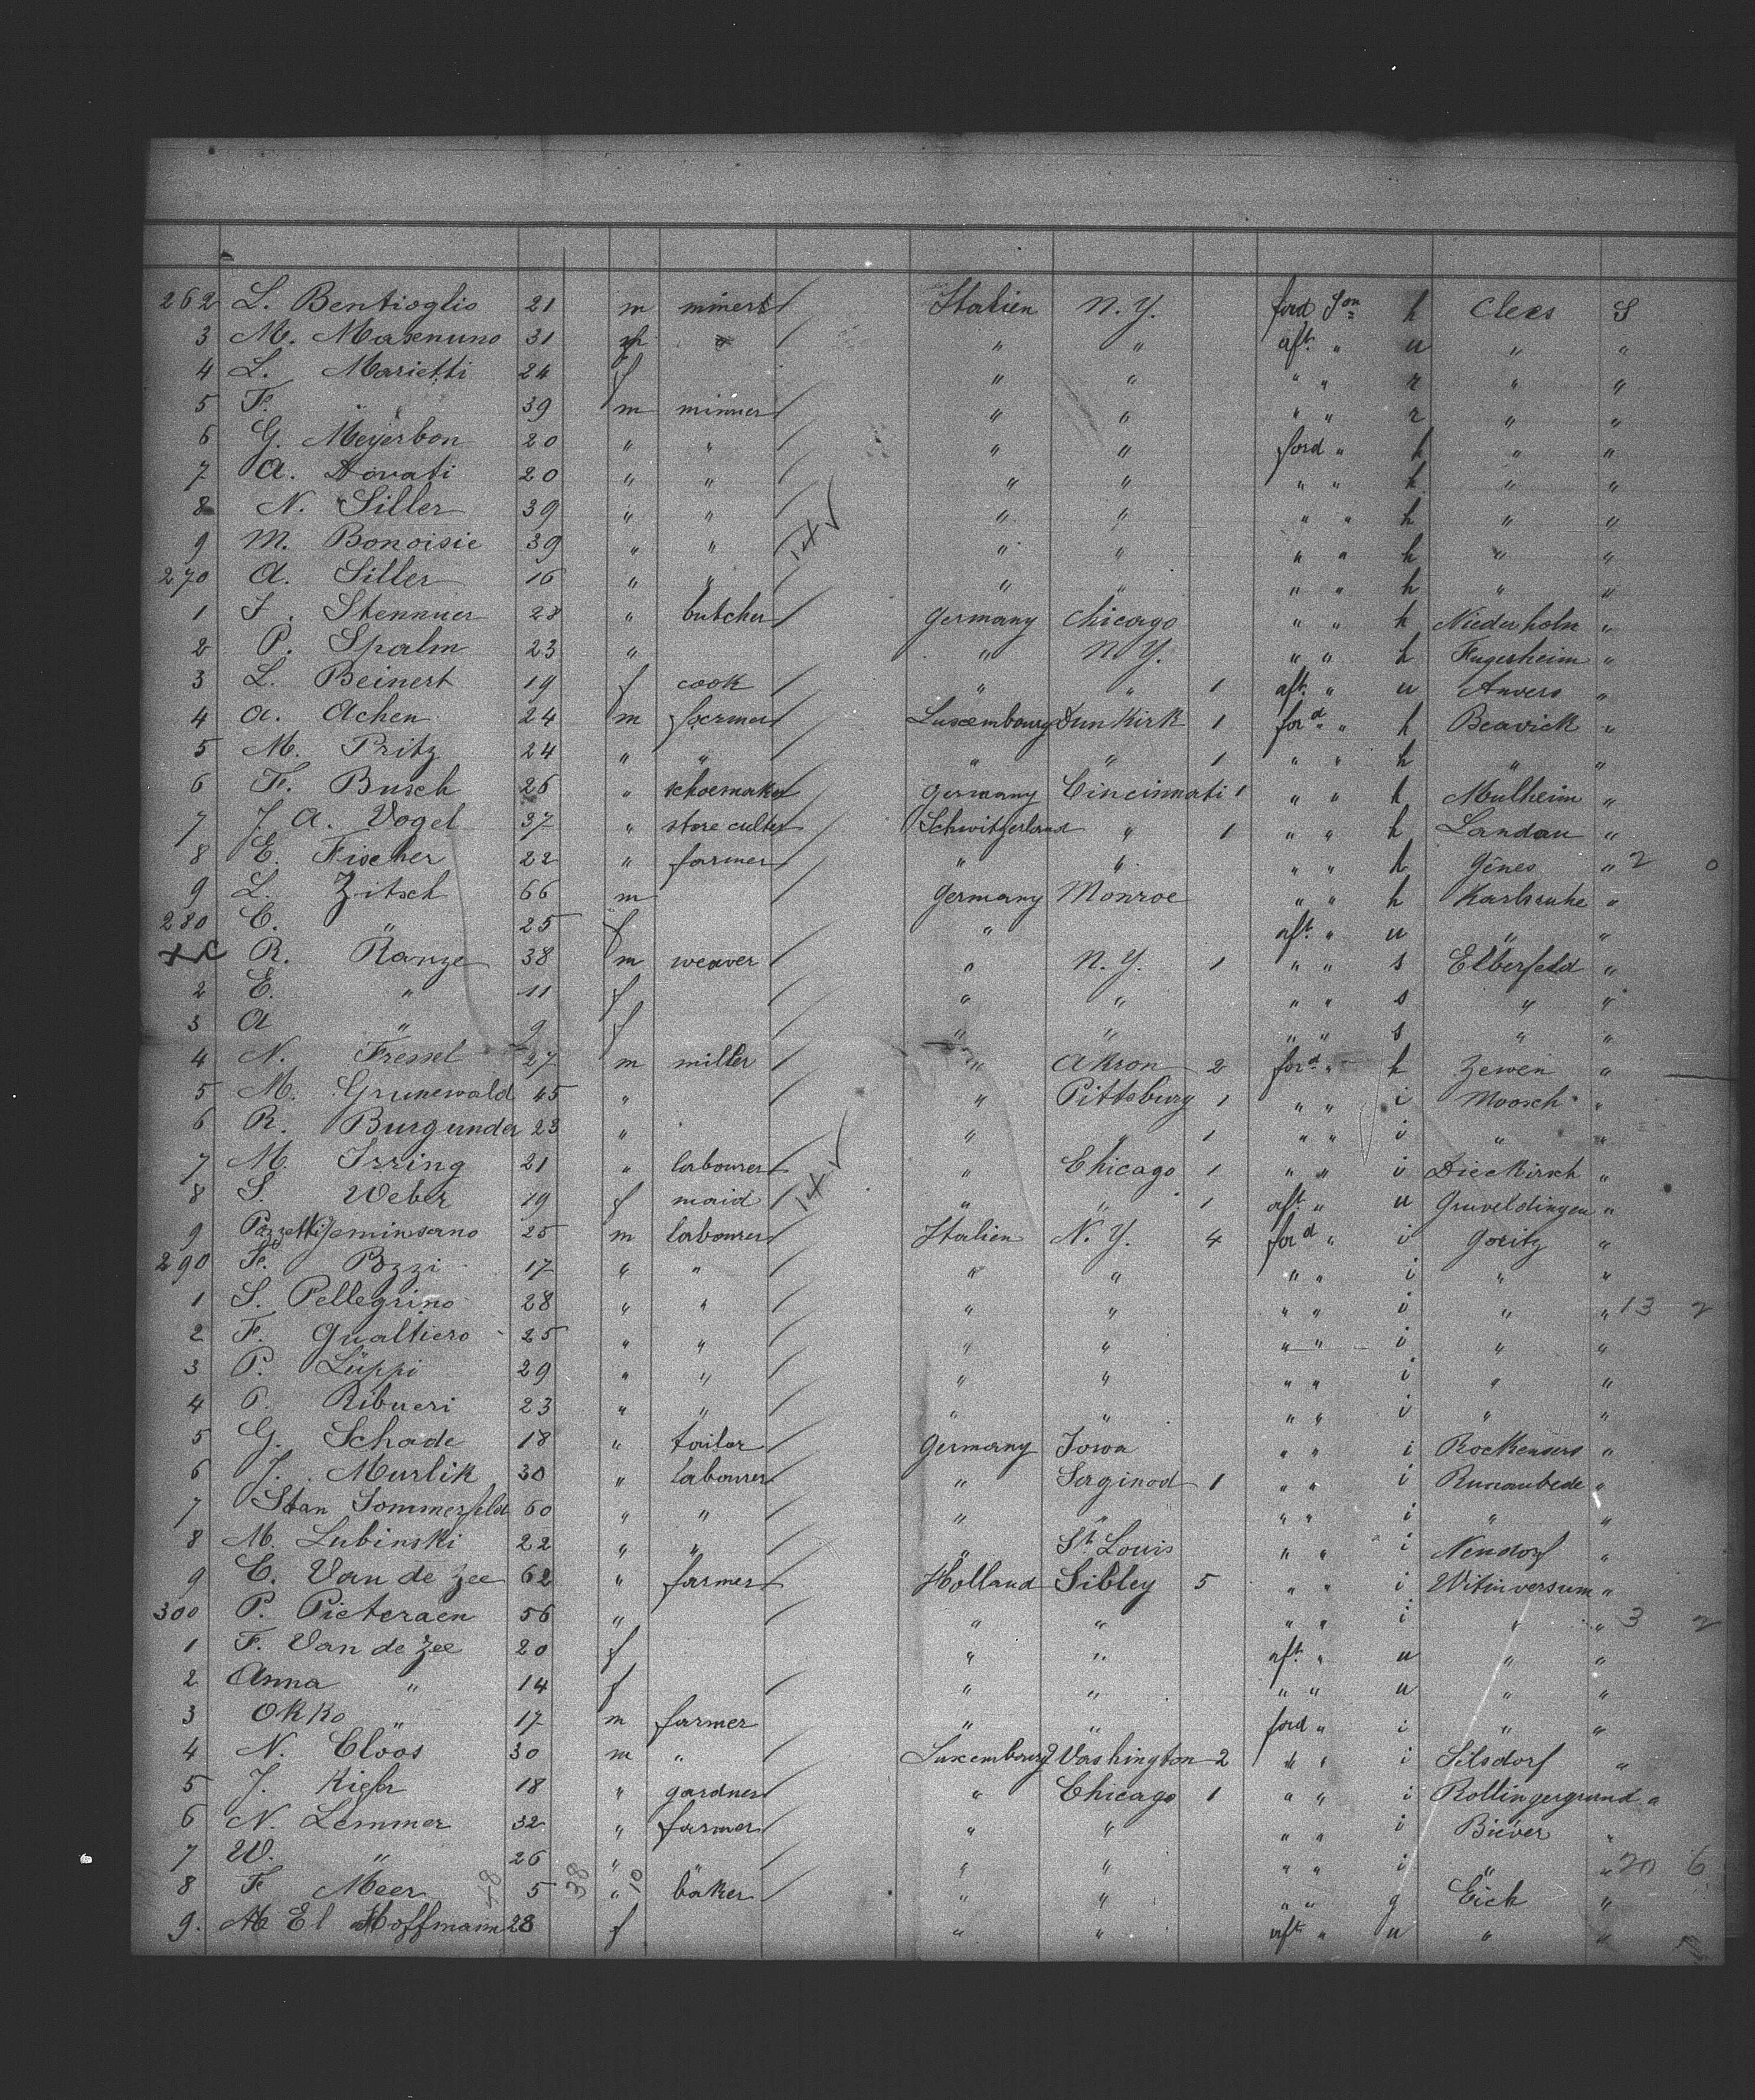 262 L. Bentioglio 21 m miner Italien N.Y. ford Son h Clees S
3 M. Masenuno 31 " " aft " u " "
4 L. Marietti 24 f " " " " r " "
5 F. " 39 m minner " " " " r " "
6 G. Meyerbon 20 " " " " ford " h " "
7 A. Hovati 20 " " " " " " h " "
8 N. Siller 39 " " " " " " h " "
9 M. Bonoisie 39 " " " " " " h " "
270 A. Siller 16 " " " " " " h " "
1 J. Stennuer 28 " butcher Germany Chicago " " h Niederholm "
2 P. Spalm 23 " " N.Y. " " h Fugersheim "
3 L. Beinert 19 f cook " " 1 aft " u Anvers "
4 A. Achen 24 m farmer Luxembourg Dunkirk 1 ford " h Beavick "
5 M. Pritz 24 " " " " 1 " " h " "
6 F. Busch 26 " schoemaker Germany Cincinnati 1 " " h Mulheim "
7 J. A. Vogel 37 " store culter Schwitzerland " 1 " " h Landau "
8 E. Fischer 22 " farmer " " " " h Gines " 2 0
9 L. Zitsch 66 m Germany Monroe " " h Karlsruhe "
280 C. " 25 f " aft " u " "
+C R. Ranze 38 m weaver " N.Y. 1 " " s Elberfeld "
2 E. " 11 f " " " " s " "
3 A " 9 f " " " " s " "
4 N. Fressel 27 m miller " Akron 2 ford " h Zewen "
5 M. Grunewald 45 " " Pittsburg 1 " " i Moosch "
6 R. Burgunder 23 " " " 1 " " i " "
7 M. Irring 21 " labourer " Chicago 1 " " i Dieckirch "
8 S. Weber 19 f maid " " 1 aft " u Gruveldingen "
9 Pazzetti Geminsano 25 m labourer Italien N.Y. 4 ford " i Goritz "
290 F. Pozzi 17 " " " " " " i " "
1 S. Pellegrino 28 " " " " " " i " " 13 2
2 F. Gualtiero 25 " " " " " " i " "
3 P. Lüppi 29 " " " " " " i " "
4 P. Ribueri 23 " " " " " " i " "
5 G. Schade 18 " tailor Germany Iowa " " i Rockensers "
6 J. Murlik 30 " labourer " Serginod 1 " " i Runaubede "
7 Stan Sommerfeld 60 " " " " " " i " "
8 M. Lubinski 22 " " " St. Louis " " i Nendorf "
9 C. Van de Zee 62 " farmer Holland Sibley 5 " " i Witinversum "
300 P. Pieteraen 56 " " " " " i " " 3 2
1 F. Van de Zee 20 f " " aft " u " "
2 Anna " 14 f " " " " u " "
3 Okko " 17 m farmer " " ford " i " "
4 N. Cloos 30 m " Luxembourg Washington 2 " " i Silsdorf "
5 J. Kiefer 18 " gardner " Chicago 1 " " i Rollingergrund "
6 N. Lemmer 32 " farmer " " " " i Biever "
7 W. " 26 " " " " " i " " 20 6
8 F. Meer 5 " baker " " " " g Eich "
9. M El Hoffmann 28 f " " aft " u " "
48 38 10